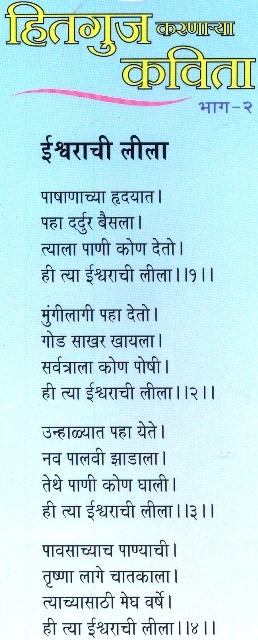 हितगुज करणाऱ्या
कविता
भाग-२
ईश्वराची लीला
पाषाणाच्या हृदयात।
पहा दर्दुर बैसला।
त्याला पाणी कोण देतो।
ही त्या ईश्वराची लीला।।१।।
मुंगीलागी पहा देतो।
गोड साखर खायला।
सर्वत्राला कोण पोषी।
ही त्या ईश्वराची लीला।।२।।
उन्हाळ्यात पहा येते।
नव पालवी झाडाला।
तेथे पाणी कोण घाली।
ही त्या ईश्वराची लीला।।३।।
पावसाच्याच पाण्याची।
तृष्णा लागे चातकाला।
त्याच्यासाठी मेघ वर्षे।
ही त्या ईश्वराची लीला।।४।।